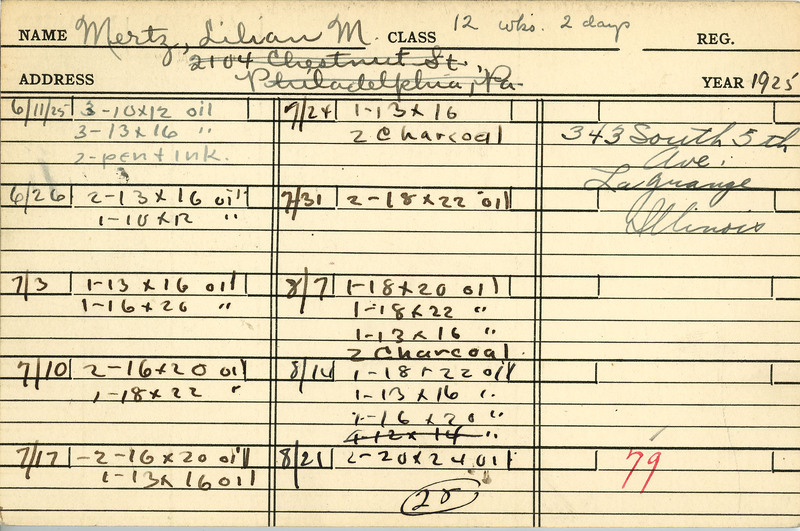 NAME Mertz, Lilian M. CLASS 12 wks. 2 days REG.
2104 Chestnut St.,
ADDRESS Philadelphia, Pa. YEAR 1925
6/11/25 3-10x12 oil
3-13x16 "
2-pen+ink.
6/26 2-13x16 oil
1-10x12 "
7/3 1-13x16 oil
1-16x20 "
7/10 2-16x20 oil
1-18x22 "
7/17 2-16x20 oil
1-13x16 oil
7/24 1-13x16
2 Charcoal
7/31 2-18x22 oil
8/7 1-18x20 oil
1-18x22 "
1-13x16 "
2 Charcoal
8/14 1-18x22 oil
1-13x16 "
1-16x20 "
1-12x14 "
8/21 2-20x24 oil
343 South 5th
Ave.
La Grange
Illinois
79